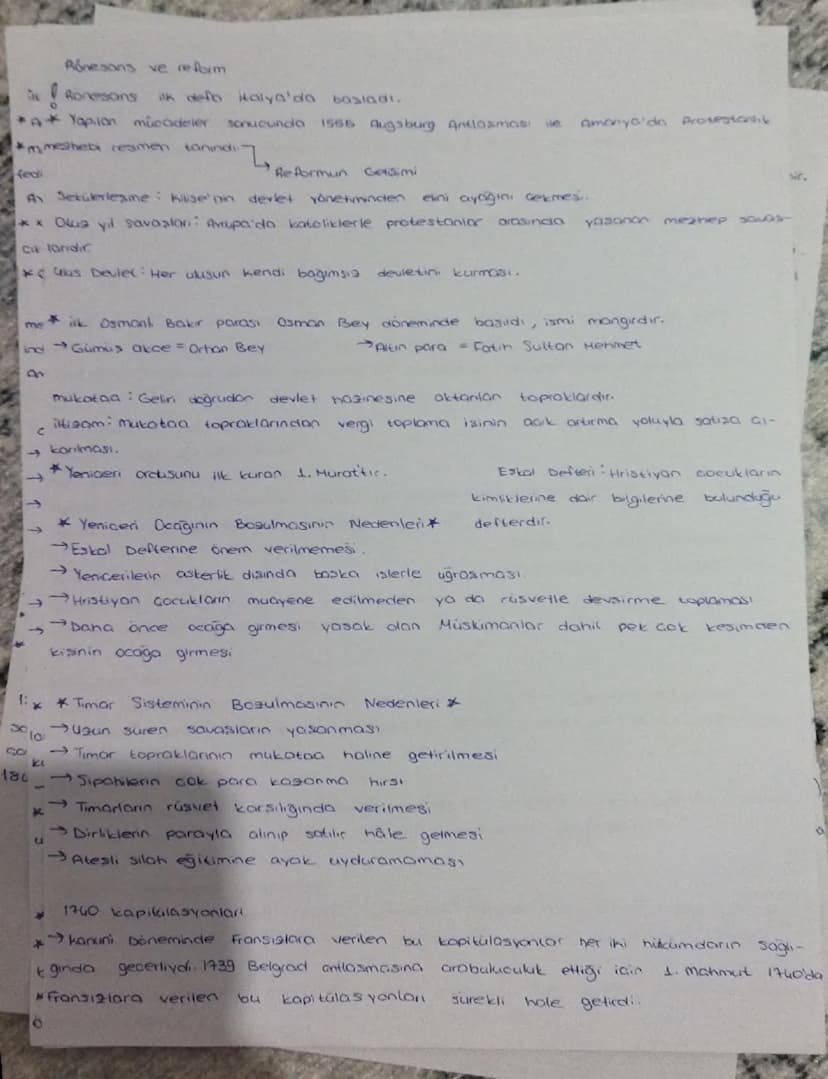 Rönesans ve reform
! Rönesans ilk defa italya'da başladı.
* Yapılan mücadeler sonucunda 1555 Augsburg Antlaşması ile Amanya'da Protestanlık
mezhebi resmen tanındı
→ Reformun Gelişimi
Sekülerleşme : Kilise'nin devlet yönetiminden elini ayağını çekmesi.
* Otuz yıl savaşları : Avrupa'da katoliklerle protestanlar arasında yaşanan mezhep savaş-
larıdır.
Ulus Devlet : Her ulusun kendi bağımsız devletini kurması.
* ilk Osmanlı Bakır parası Osman Bey döneminde basıldı, ismi mangırdır.
→ Gümüş akçe = Orhan Bey → Altın para = Fatih Sultan Mehmet
mukataa : Geliri doğrudan devlet hazinesine aktarılan topraklardır.
iltizam : mukataa topraklarından vergi toplama işinin açık artırma yoluyla satışa çı-
karılması.
* Yeniçeri ordusunu ilk kuran 1. Murat'tır.
Eşkal Defteri : Hristiyan çocukların
kimliklerine dair bilgilerine bulunduğu
defterdir.
* Yeniçeri Ocağının Bozulmasının Nedenleri *
→ Eşkal Defterine önem verilmemesi.
→ Yeniçerilerin askerlik dışında başka işlerle uğraşması
→ Hristiyan çocukların muayene edilmeden ya da rüşvetle devşirme toplaması
→ Daha önce ocağa girmesi yasak olan Müslümanlar dahil pek çok kesimden
kişinin ocağa girmesi
* Tımar Sisteminin Bozulmasının Nedenleri *
→ Uzun süren savaşların yaşanması
→ Tımar topraklarının mukataa haline getirilmesi
→ Sipahilerin çok para kazanma hırsı
→ Tımarların rüşvet karşılığında verilmesi
→ Dirliklerin parayla alınıp satılır hâle gelmesi
→ Ateşli silah eğitimine ayak uyduramaması
* 1740 kapitülasyonları
→ Kanuni Döneminde Fransızlara verilen bu kapitülasyonlar her iki hükümdarın sağlı-
ğında geçerliydi. 1739 Belgrad antlaşmasına arabuluculuk ettiği için 1. Mahmut 1740'da
Fransızlara verilen bu kapitülasyonları sürekli hale getirdi.